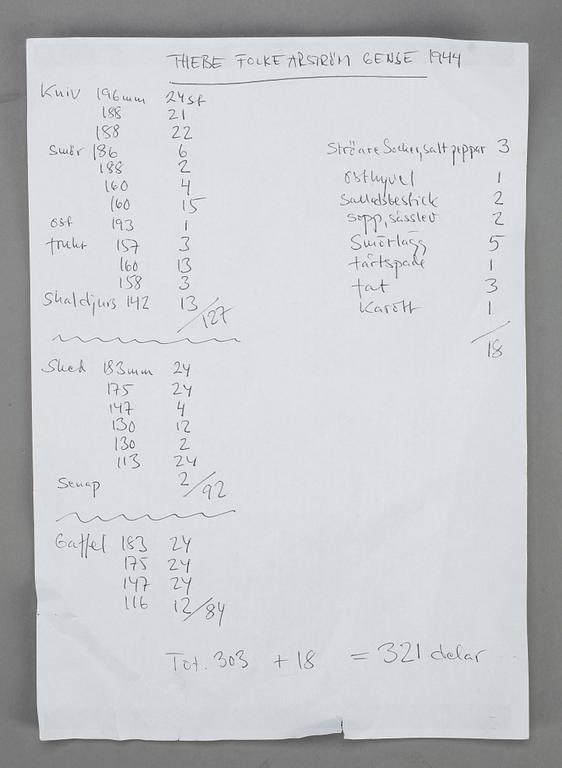 THEBE FOLKE ARSTRÖM GENSE 1944
Kniv 196mm 24st
188 21
188 22
Smör 186 6
188 2
160 4
160 15
ost 193 1
frukt 157 3
160 13
158 3
Skaldjurs 142 13/127
Sked 183mm 24
175 24
147 4
130 12
130 2
113 24
Senap 2/92
Gaffel 183 24
175 24
147 24
116 12/84
Ströare Socker, salt peppar 3
osthyvel 1
Salladsbestick 2
sopp, såsslev 2
Smörlägg 5
tårtspade 1
fat 3
Karott 1
/18
Tot. 303 + 18 = 321 delar